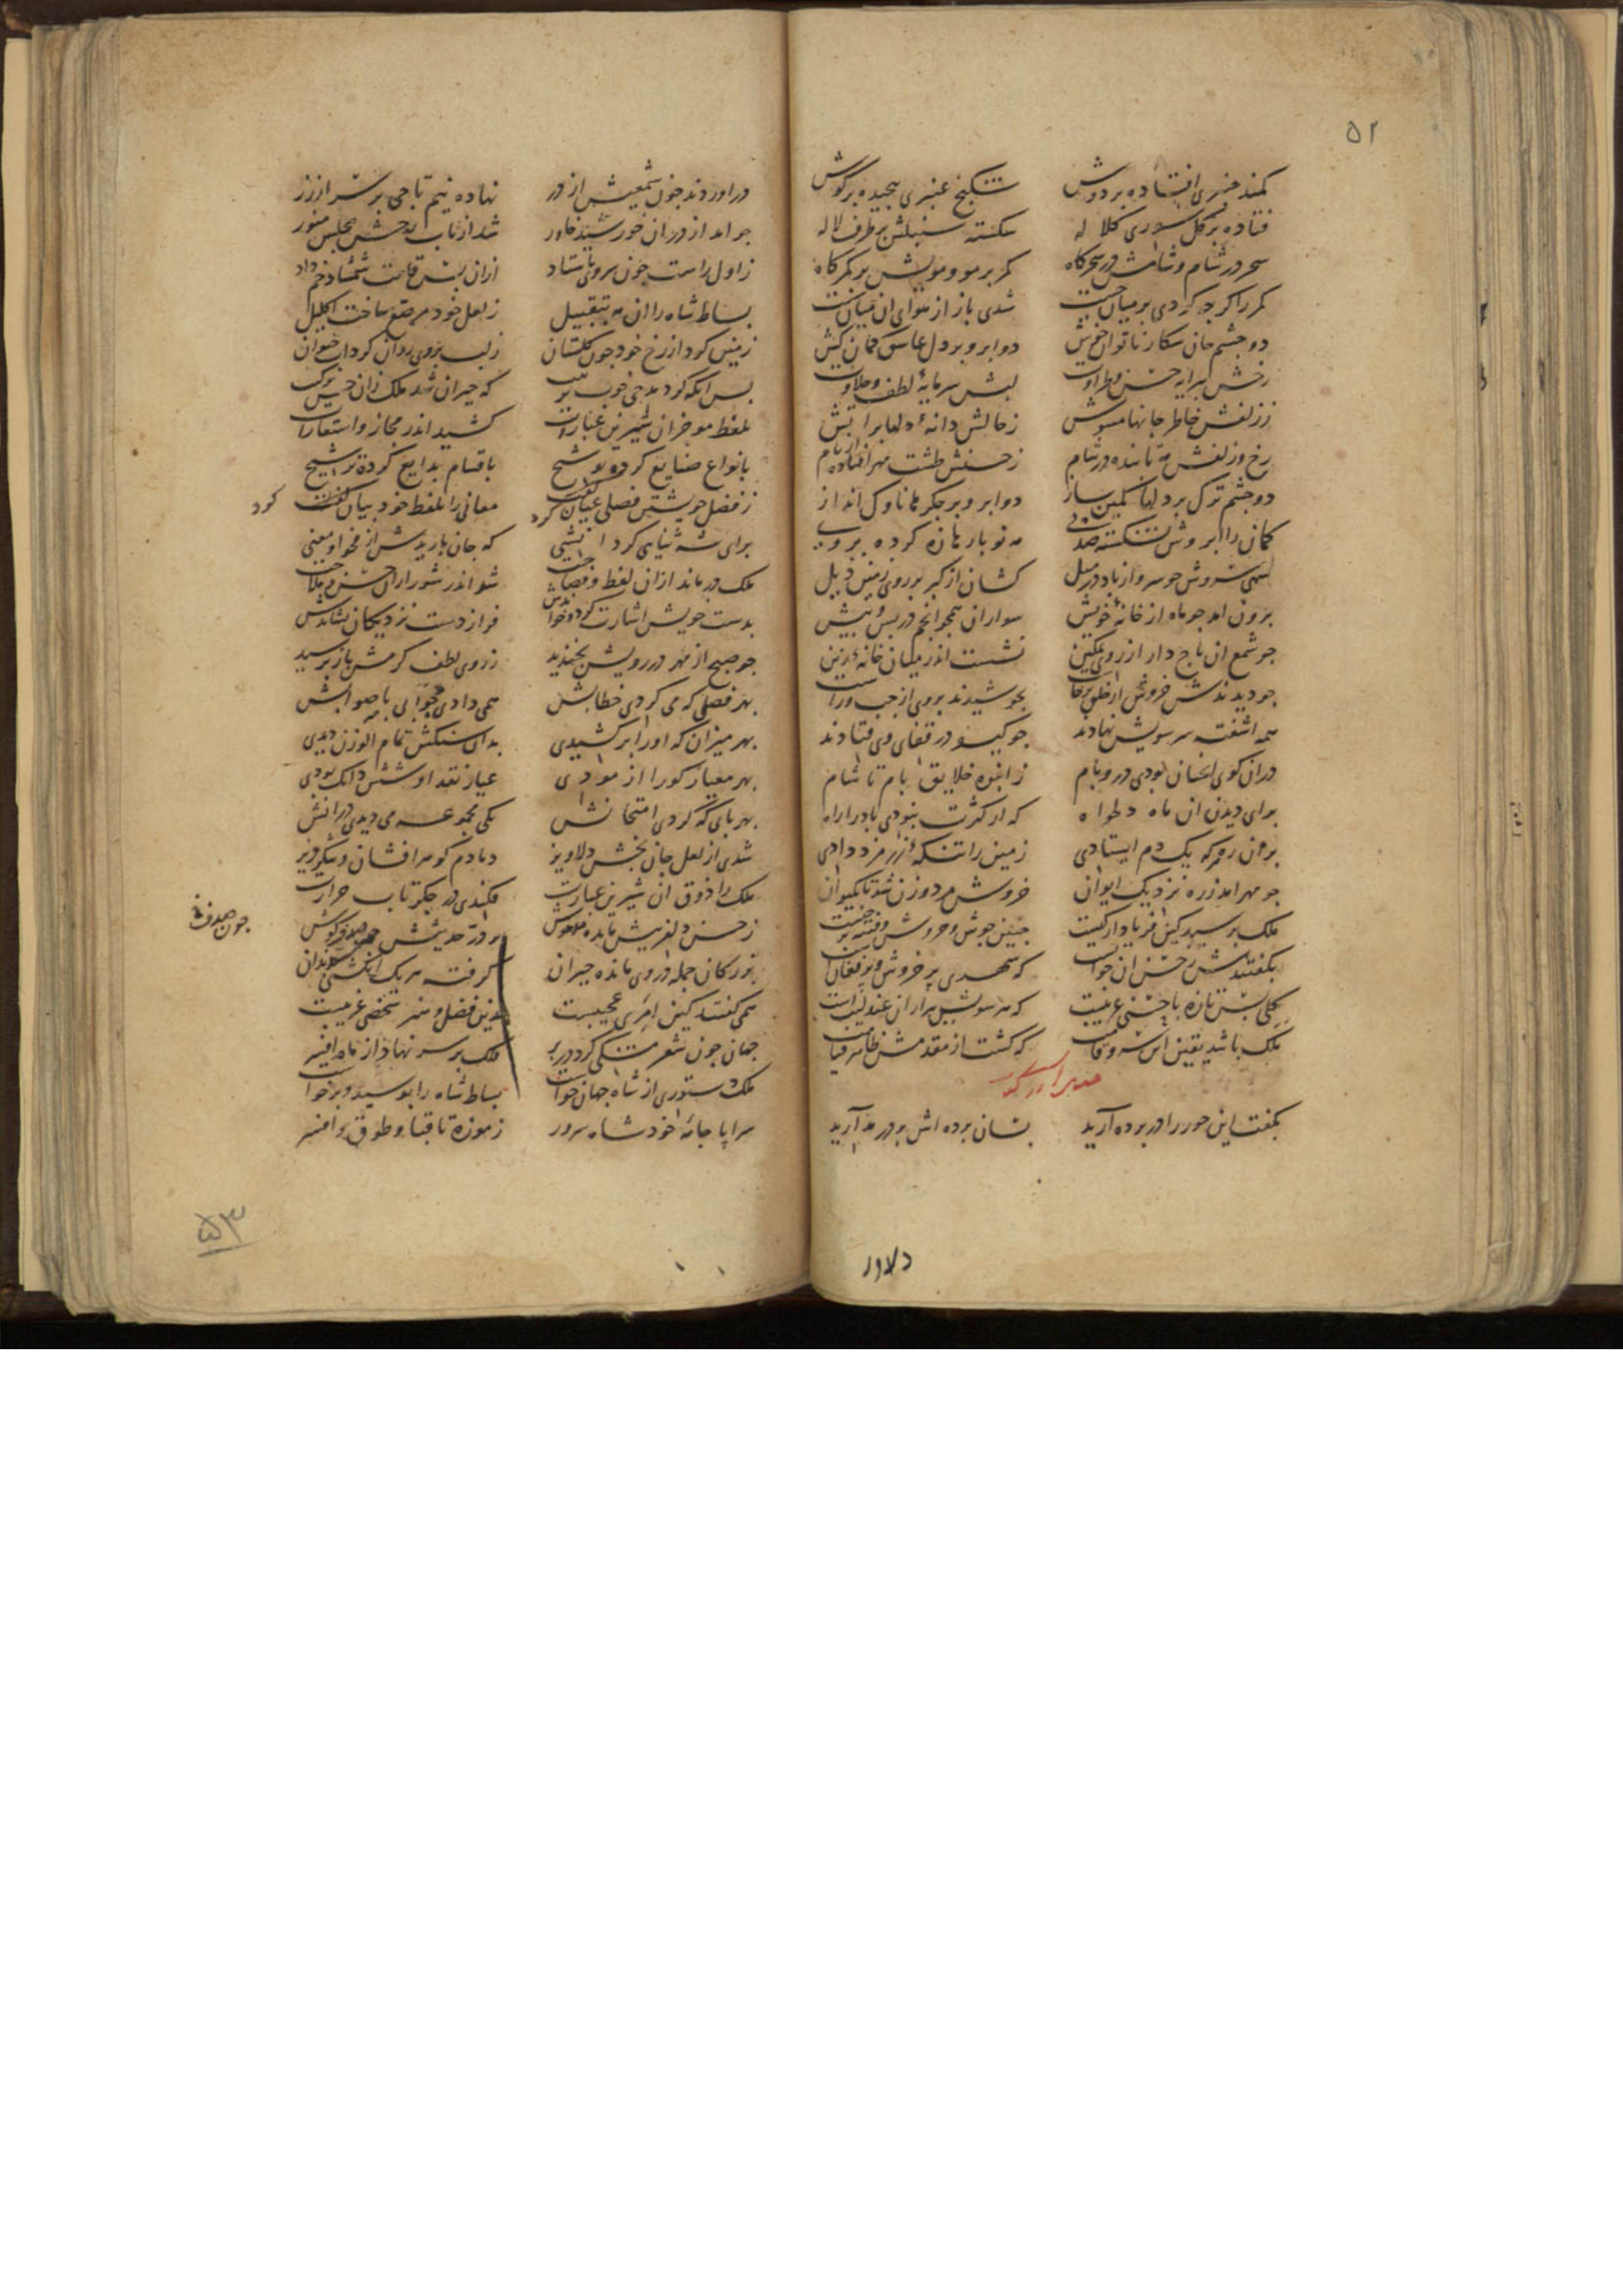 ۵۲
کمند عنبری افتاده بر دوش شکنج عنبری پیچیده بر گوش
فتاده بر گل سوری کلاله شکسته سنبلش بر طرف لاله
سحر در شام و شامش در سحرگاه کمر بر مو و مویش بر کمرگاه
کمر را گرچه کردی بر میان شدی باز از هوای آن میان
دو چشم جان شکار ناتوان دو ابرو بر دل عاشق کمان کش
رخش پیرایه حسن و طراوت لبش سرمایهٔ لطف و حلاوت
ز زلفش خاطر جانها مشوش ز خالش دانهٔ دلها بر آتش
رخ و زلفش مه تابنده در شام ز حسنش طشت مهر افتاده از بام
دو چشم ترک بر دلها کمین ساز دو ابرو بر جگرها ناوک انداز
کمان را ابروش شکسته مه نو بارها زه کرده بر وی
سهی سروش چو سرو از باد در میل کشان از کبر بر روی زمین ذیل
برون آمد چو ماه از خانهٔ خویش سواران همچو انجم در پس و پیش
چو شمع آن تاج دار از روی تمکین نشست اندر میان خانهٔ زین
چو دیدندش خروش از خلق برخاست بجوشیدند بر وی از چپ و راست
همه آشفته سر سویش نهادند چو گیسو در قفای وی فتادند
در آن کوی انسان بودی در و بام ز انبوه خلایق بام تا شام
برای دیدن آن ماه دلخواه که از کثرت نبودی باد را راه
بر آن ره گر که یک دم ایستادی زمین را تنکهٔ زر مزد دادی
چو مهر آمد ز ره نزدیک ایوان خروش مرد و زن شد تا بکیوان
ملک پرسید کین فریاد از کیست چنین جوش و خروش و فتنه
بگفتندش ز حسن آن جوان است که شهری پر خروش و پر فغان است
گلی بس تازه با حسنی غریبست که هر سویش هزاران عندلیب است
ملک باشد یقین این که گشت از مقدمش ظاهر
بگفت این حور را در پرده آرید بسان پرده اش بر در مدارید
دلاور
در آوردند چون شمعیش از در نهاده نیم تاجی بر سر از زر
چو آمد از در آن خورشید خاور شد از تاب رخش مجلس منور
ز اول راست چون سروی بایستاد از آن پس قامت شمشاد خم داد
بساط شاه را آن مه بتقبیل ز لعل خود مرصع ساخت اکلیل
زمین کرد از رخ خود چون گلستان ز لب بر وی روان کرد آب حیوان
پس آنگه کرد مدحی خوب ترتیب که حیران شد ملک زان حسن ترکیب
بلفظ موجز آن شیرین عبارت کشید اندر مجاز و استعارت
بانواع صنایع کرده توشیح باقسام بدایع کرده ترشیح
ز فضل خویشتن فصلی عیان کرد معانی را بلفظ خود بیان کرد
برای شه ثنایی کرد انشی که جان بارید از فحوا و معنی
ملک درماند از آن لفظ و فصاحت شد اندر شور از آن حسن و ملاحت
بدست خویش اشارت کرد و خواندش فراز دست نزدیکان نشاندش
چو صبح از مهر در رویش بخندید ز روی لطف گرمش باز پرسید
بهر فصلی که می کردی خطابش همی دادی جوابی با صوابش
بهر میزان که او را برکشیدی بدان سنگش تمام الوزن دیدی
بهر معیار کو را آزمودی عیار نقد او شش دانگ بودی
بهر بابی که کردی امتحانش یکی مجموعه می دیدی در آنش
شدی از لعل جان بخش دلاویز دمادم گوهر افشان و شکر ریز
ملک را ذوق آن شیرین عبارت فکندی در جگر تاب حرارت
ز حسن دلفریبش مانده مدهوش ز در حدیثش گوش
چون صدف
بزرگان جمله در وی مانده حیران گرفته هر یک انگشتی بدندان
همی گفتند کین امری عجیبست بدین فضل و هنر شخصی غریبست
جهان چون شعر مشکی کرد در بر ملک بر سر نهاد از ماه افسر
ملک دستوری از شاه جهان خواست بساط شاه را بوسید و برخاست
سراپا جامهٔ خود شاه سرور ز موزه تا قبا و طوق و افسر
۵۳